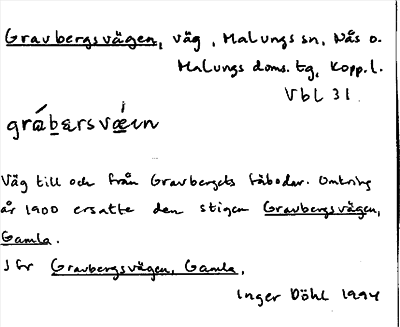 Gravbergsvägen, väg, Malungs sn, Nås o.
Malungs doms. tg, Kopp. l.
Vbl 31.
Väg till och från Gravbergets fäbodar. Omkring
år 1900 ersatte den stigen Gravbergsvägen,
Gamla.
Jfr Gravbergsvägen, Gamla.
Inger Döhl 1994